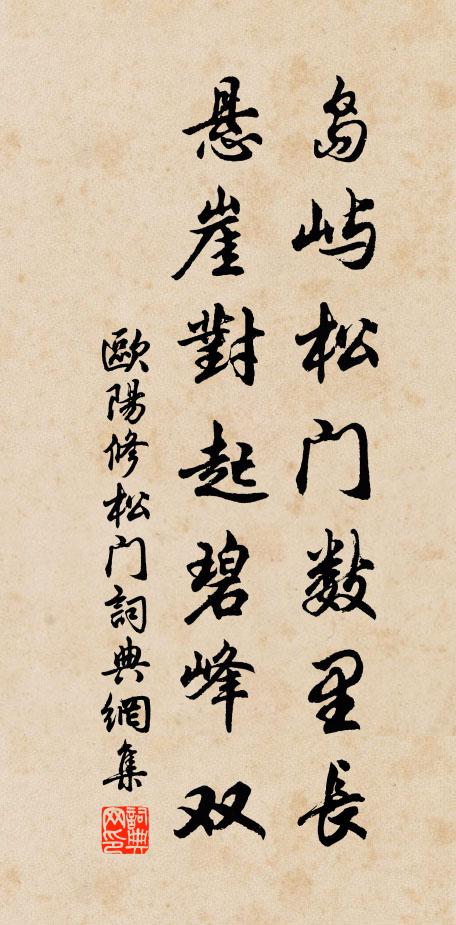 岛屿松门数里長
悬崖對起碧峰双
歐陽修松门詞典網集
詞典网印